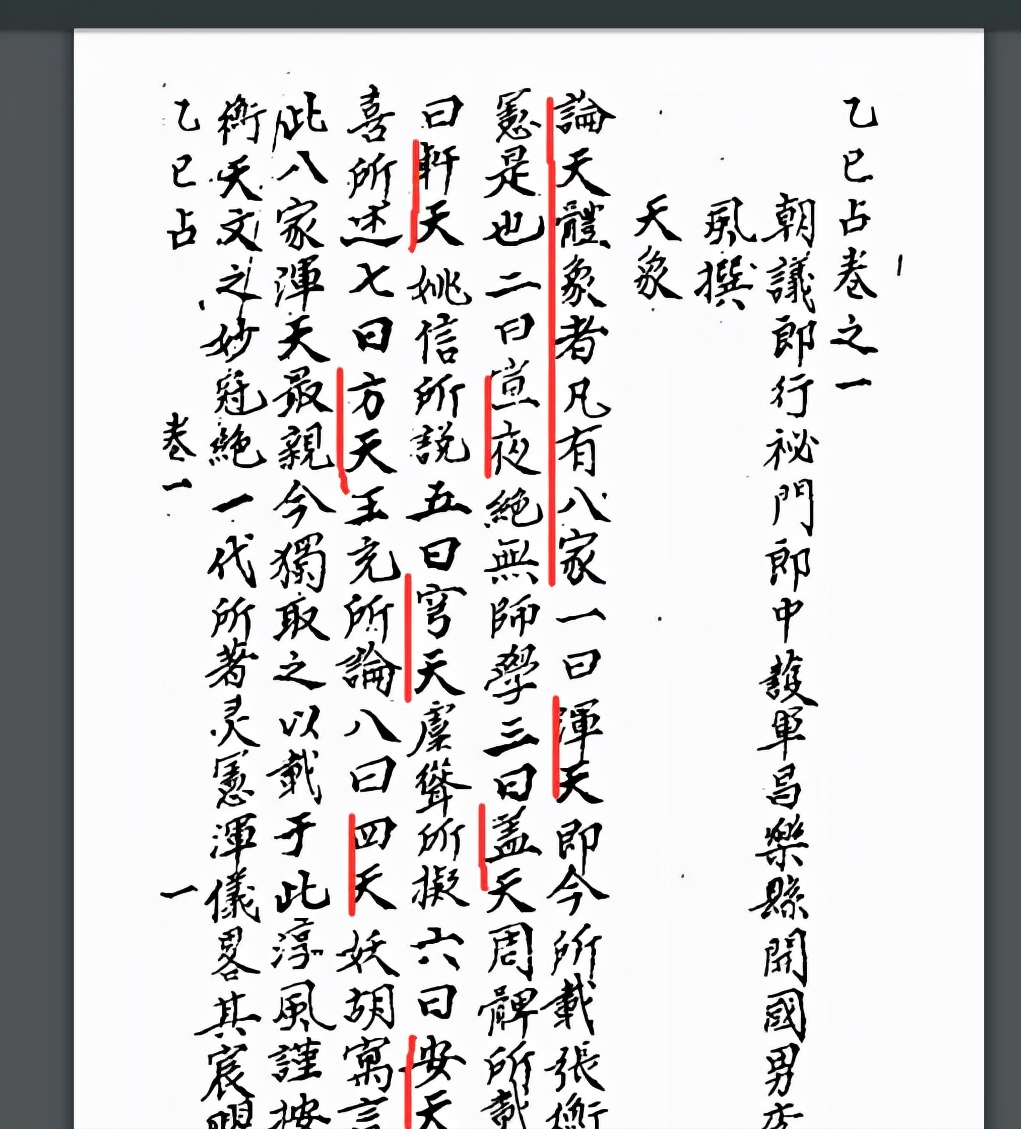 乙巳占卷之一
朝議郎行祕門郎中護軍昌樂縣開國男李
風撰
天象
論天體象者凡有八家一曰渾天即今所載張衡
憲是也二曰宣夜絕無師學三曰蓋天周髀所載
曰軒天姚信所説五曰穹天虞聳所擬六曰安天
喜所述七曰方天王充所論八曰四天妖胡寓言
此八家渾天最親今獨取之以載于此淳風謹按
衡天文之妙冠絕一代所著灵憲渾儀畧具宸
乙巳占 卷一 一